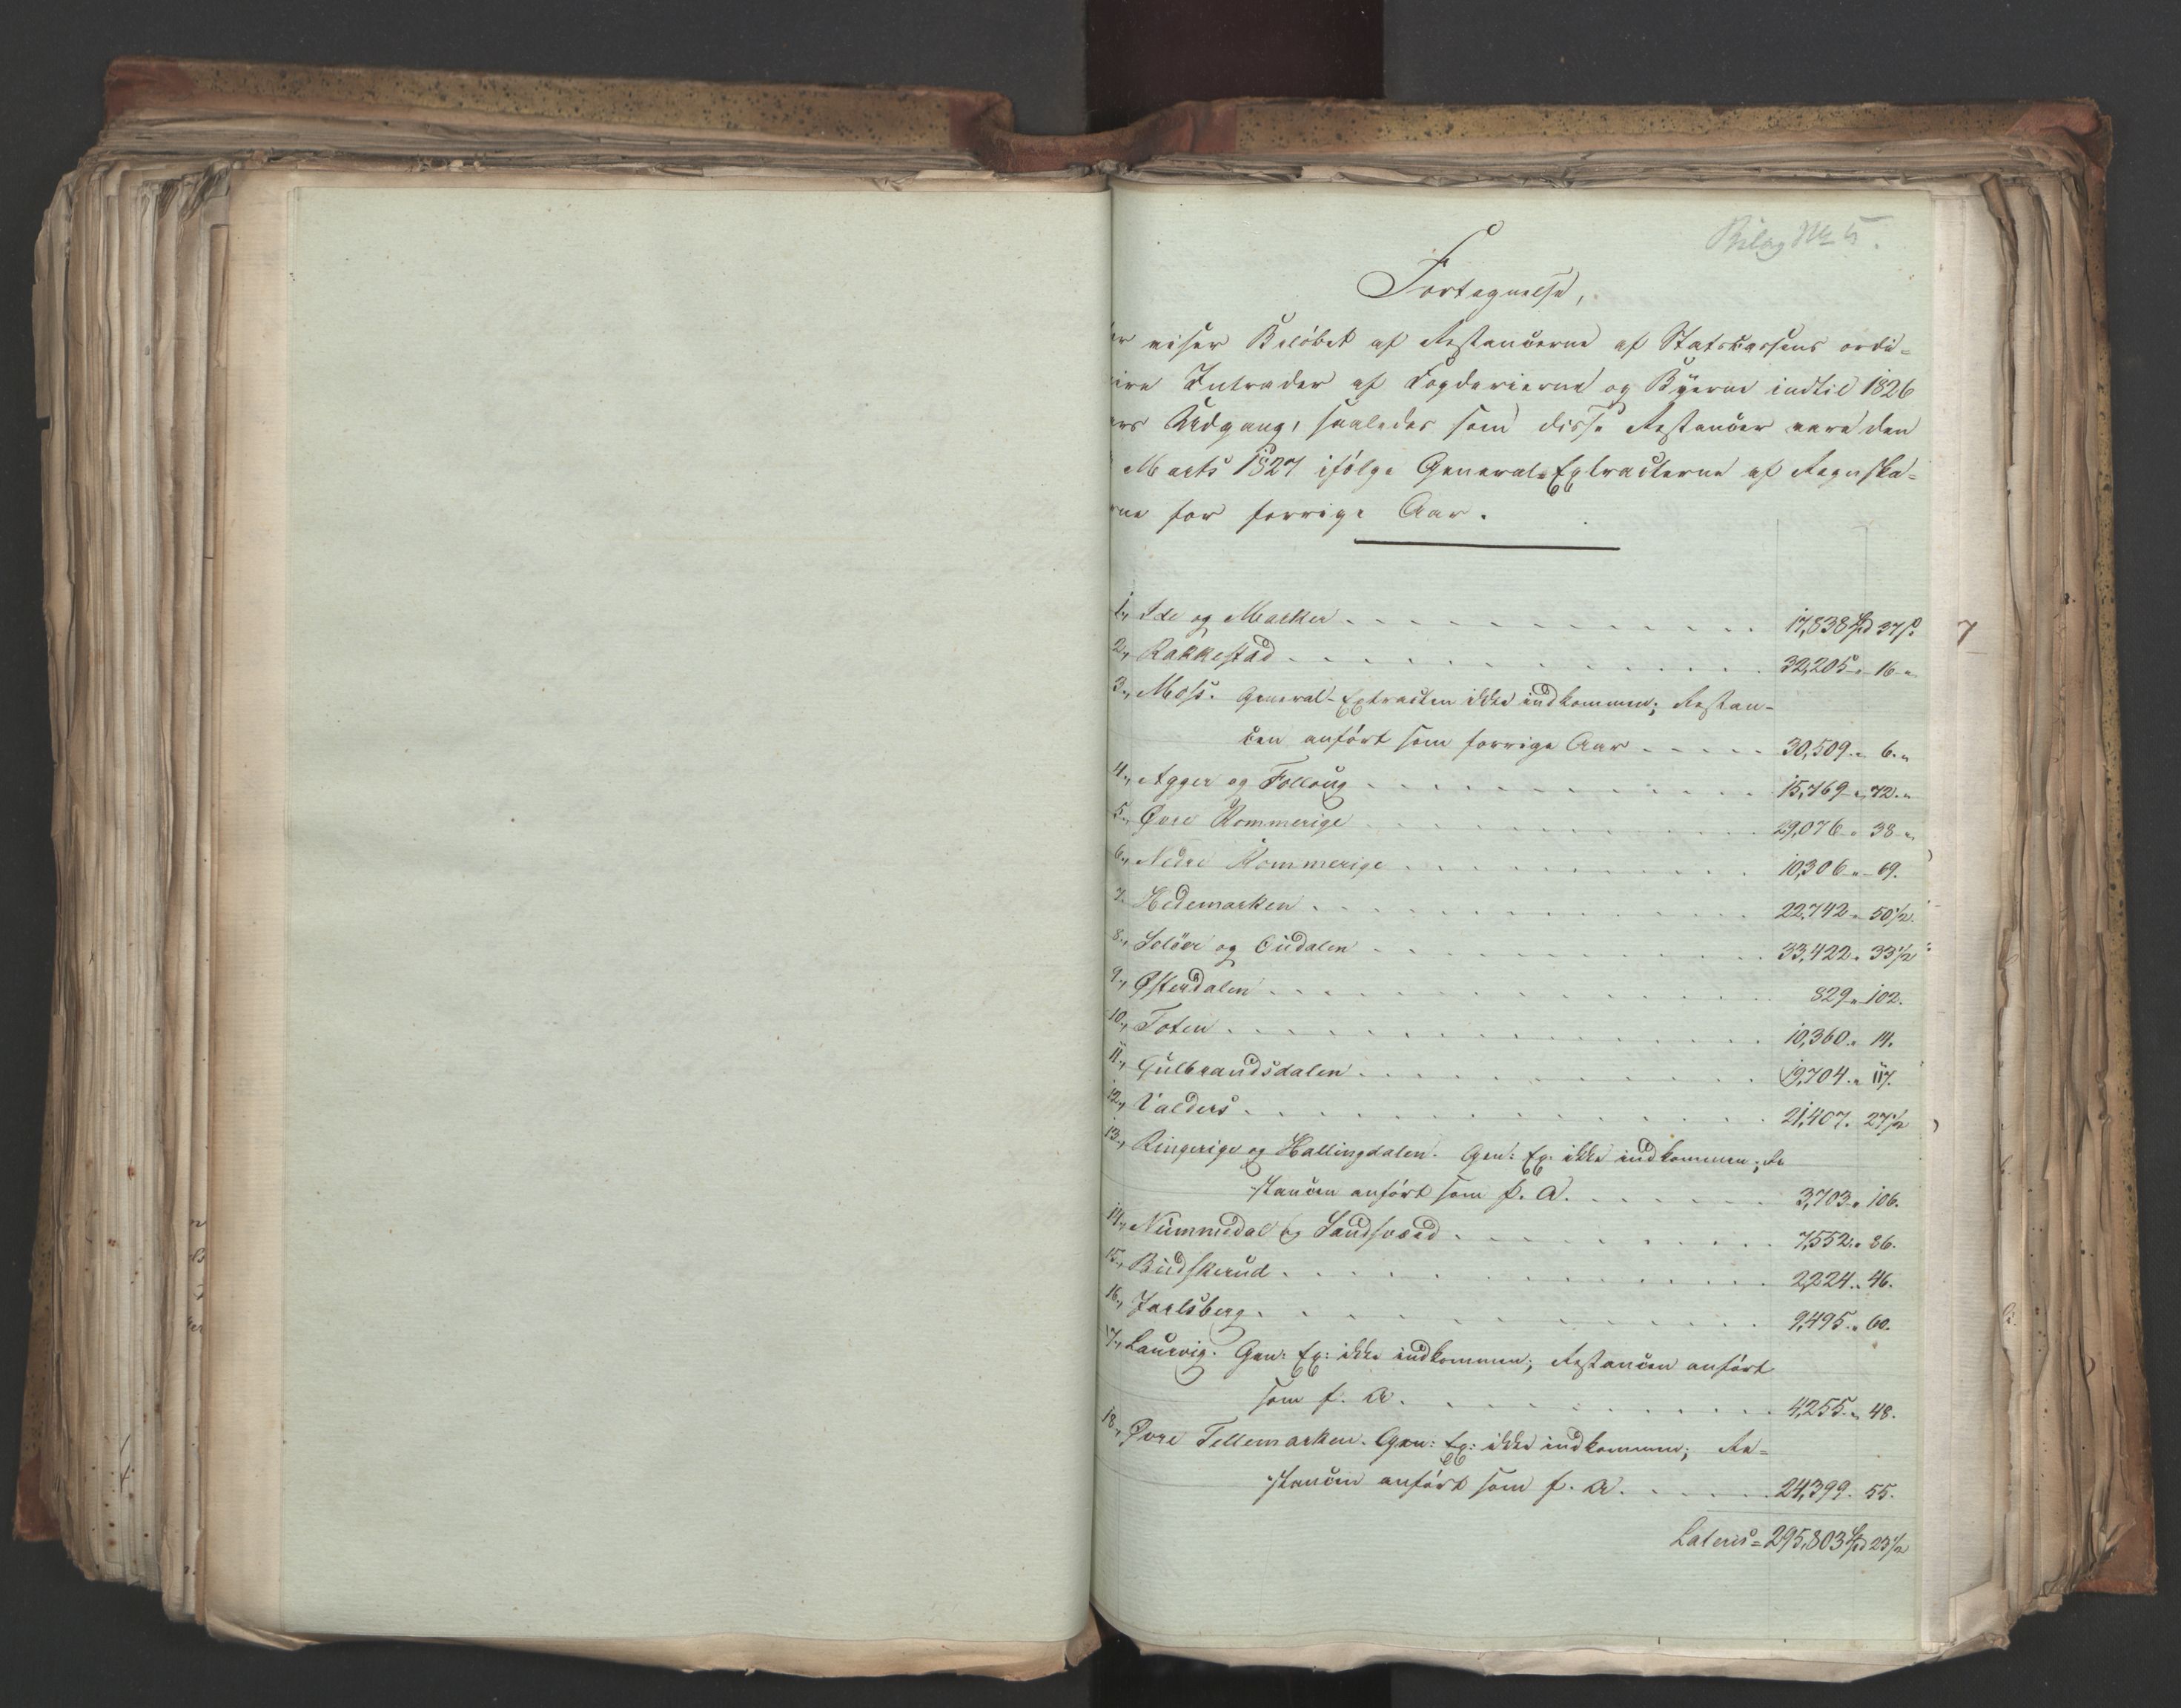 Bilag No 5.
Fortegnelse,
er viser Beløbet af Restancerne af Statscassens ordi-
aire Intrader af Fogderierne og Byerne indtil 1826
ars Udgang, saaledes som disse Restancer vare den
Marts 1827 ifølge General-Extracterne af Regnska-
rne for forrige Aar.
1., Ide og Marker 17,838 Spd 37 s.
2., Rakkestad 32,205 " 16 "
3., Moss. General-Extracten ikke indkommen; Restan-
cen anført som forrige Aar 30,509 " 6. "
4., Agger og Folloug 15,769 " 72. "
5., Øvre Rommerige 29,076 " 38 "
6., Nedre Rommerige 10,306 " 69.
7. Hedemarken 22,742 " 50½.
8., Soløer og Oudalen 33,422 " 33½
9., Østerdalen 829 " 102.
10., Toten 10,360 " 14.
11., Gulbrandsdalen 19,704 " 117.
12., Valders 21,407. 27½
13., Ringerige og Hallingdalen. Gen: Ex. ikke indkommen; Re
stancen anført som f. A. 3,703 " 106.
14., Nummedal og Sandsværd 7,552 " 86.
15., Budskerud 2,224 " 46.
16., Jarlsberg 9,495 " 60.
17., Laurvig. Gen: Ex: ikke indkommen; Restancen anført
som f. A. 4,255 " 48.
18., Øvre Tellemarken. Gen: Ex: ikke indkommen; Re-
stancen anført som f. A. 24,399. 55.
Lateris = 295,803 Spd 23½